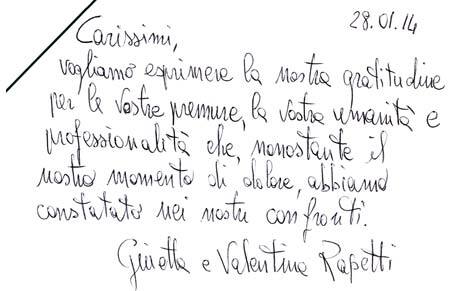 28.01.14
Carissimi,
vogliamo esprimere la nostra gratitudine
per le Vostre premure, la Vostra umanità e
professionalità che, nonostante il
nostro momento di dolore, abbiamo
constatato nei nostri confronti.
Giuietta e Valentina Rapetti